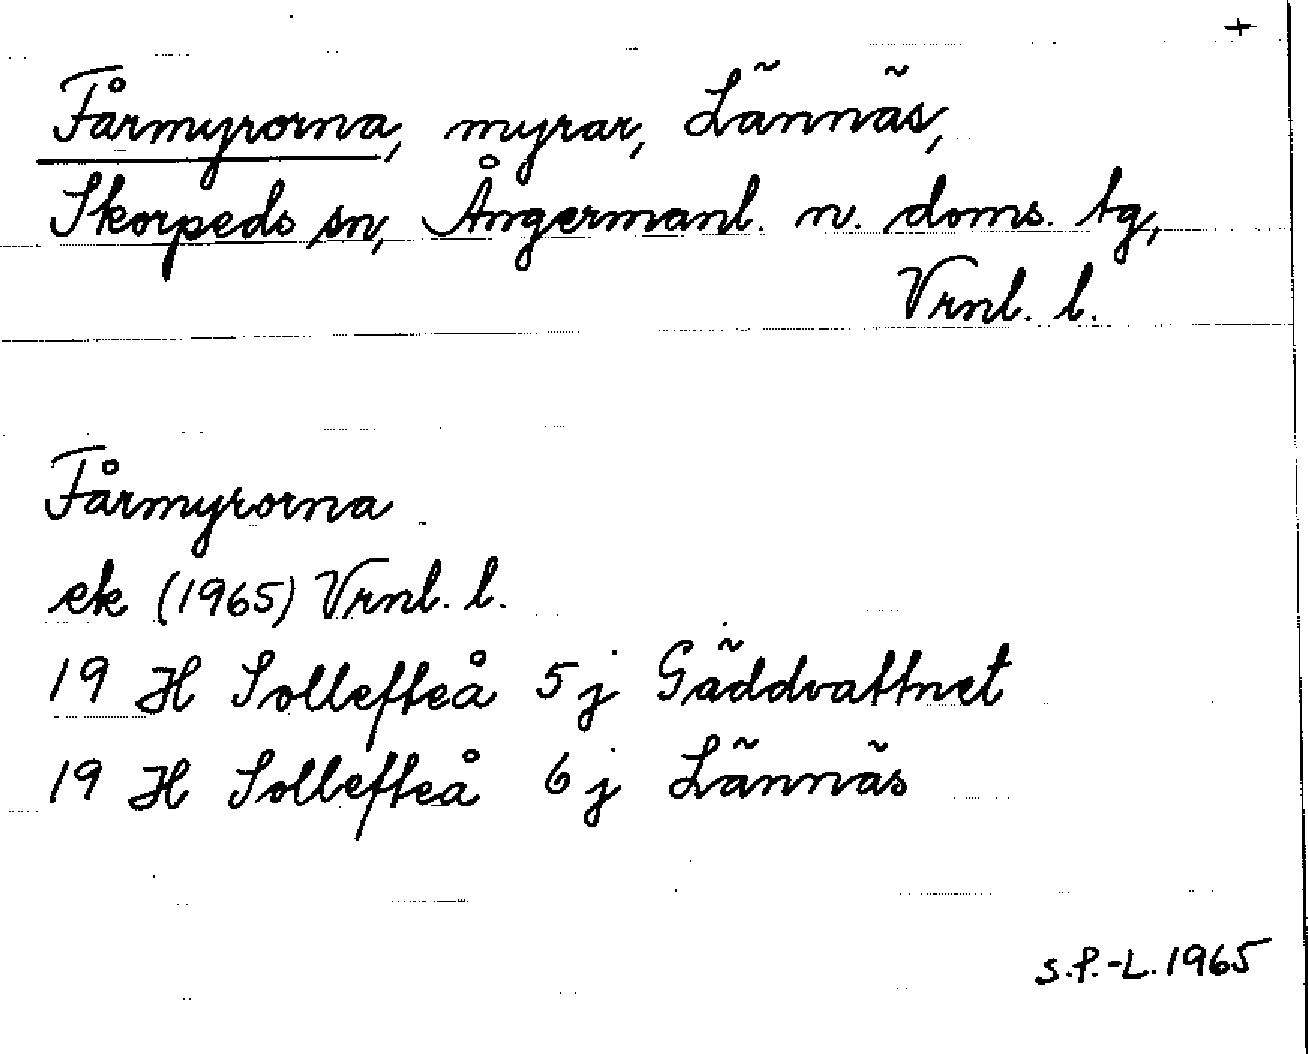 +
Fårmyrorna, myrar, Lännäs,
Skorpeds sn, Ångermanl. n. doms. tg,
Vrnl. l.
Fårmyrorna
ek (1965) Vrnl. l.
19 H Sollefteå 5 j Gäddvattnet
19 H Sollefteå 6 j Lännäs
S.P.-L. 1965